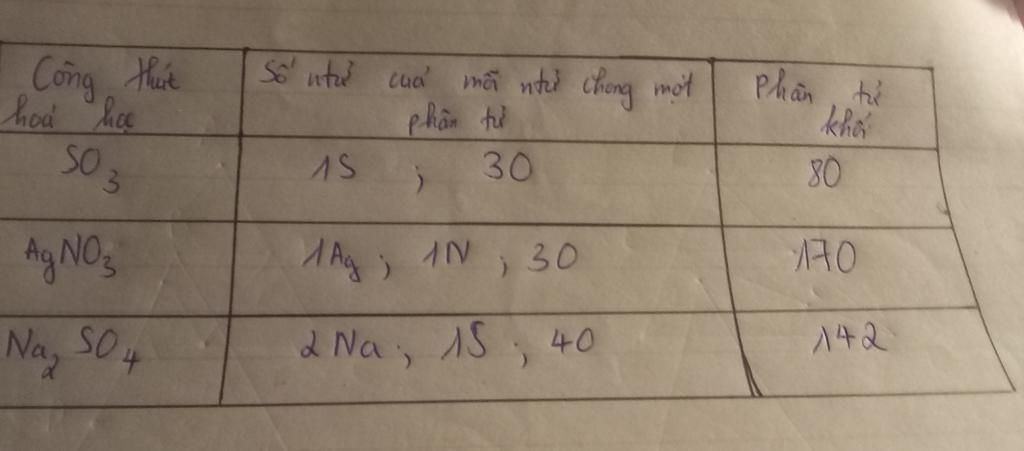 Công thức
hoá học
Số ntử cuả mỗi ntử chong một
phân tử
Phân tử
khối
SO₃
1S ; 3O
80
AgNO₃
1Ag ; 1N ; 3O
170
Na₂SO₄
2Na ; 1S ; 4O
142